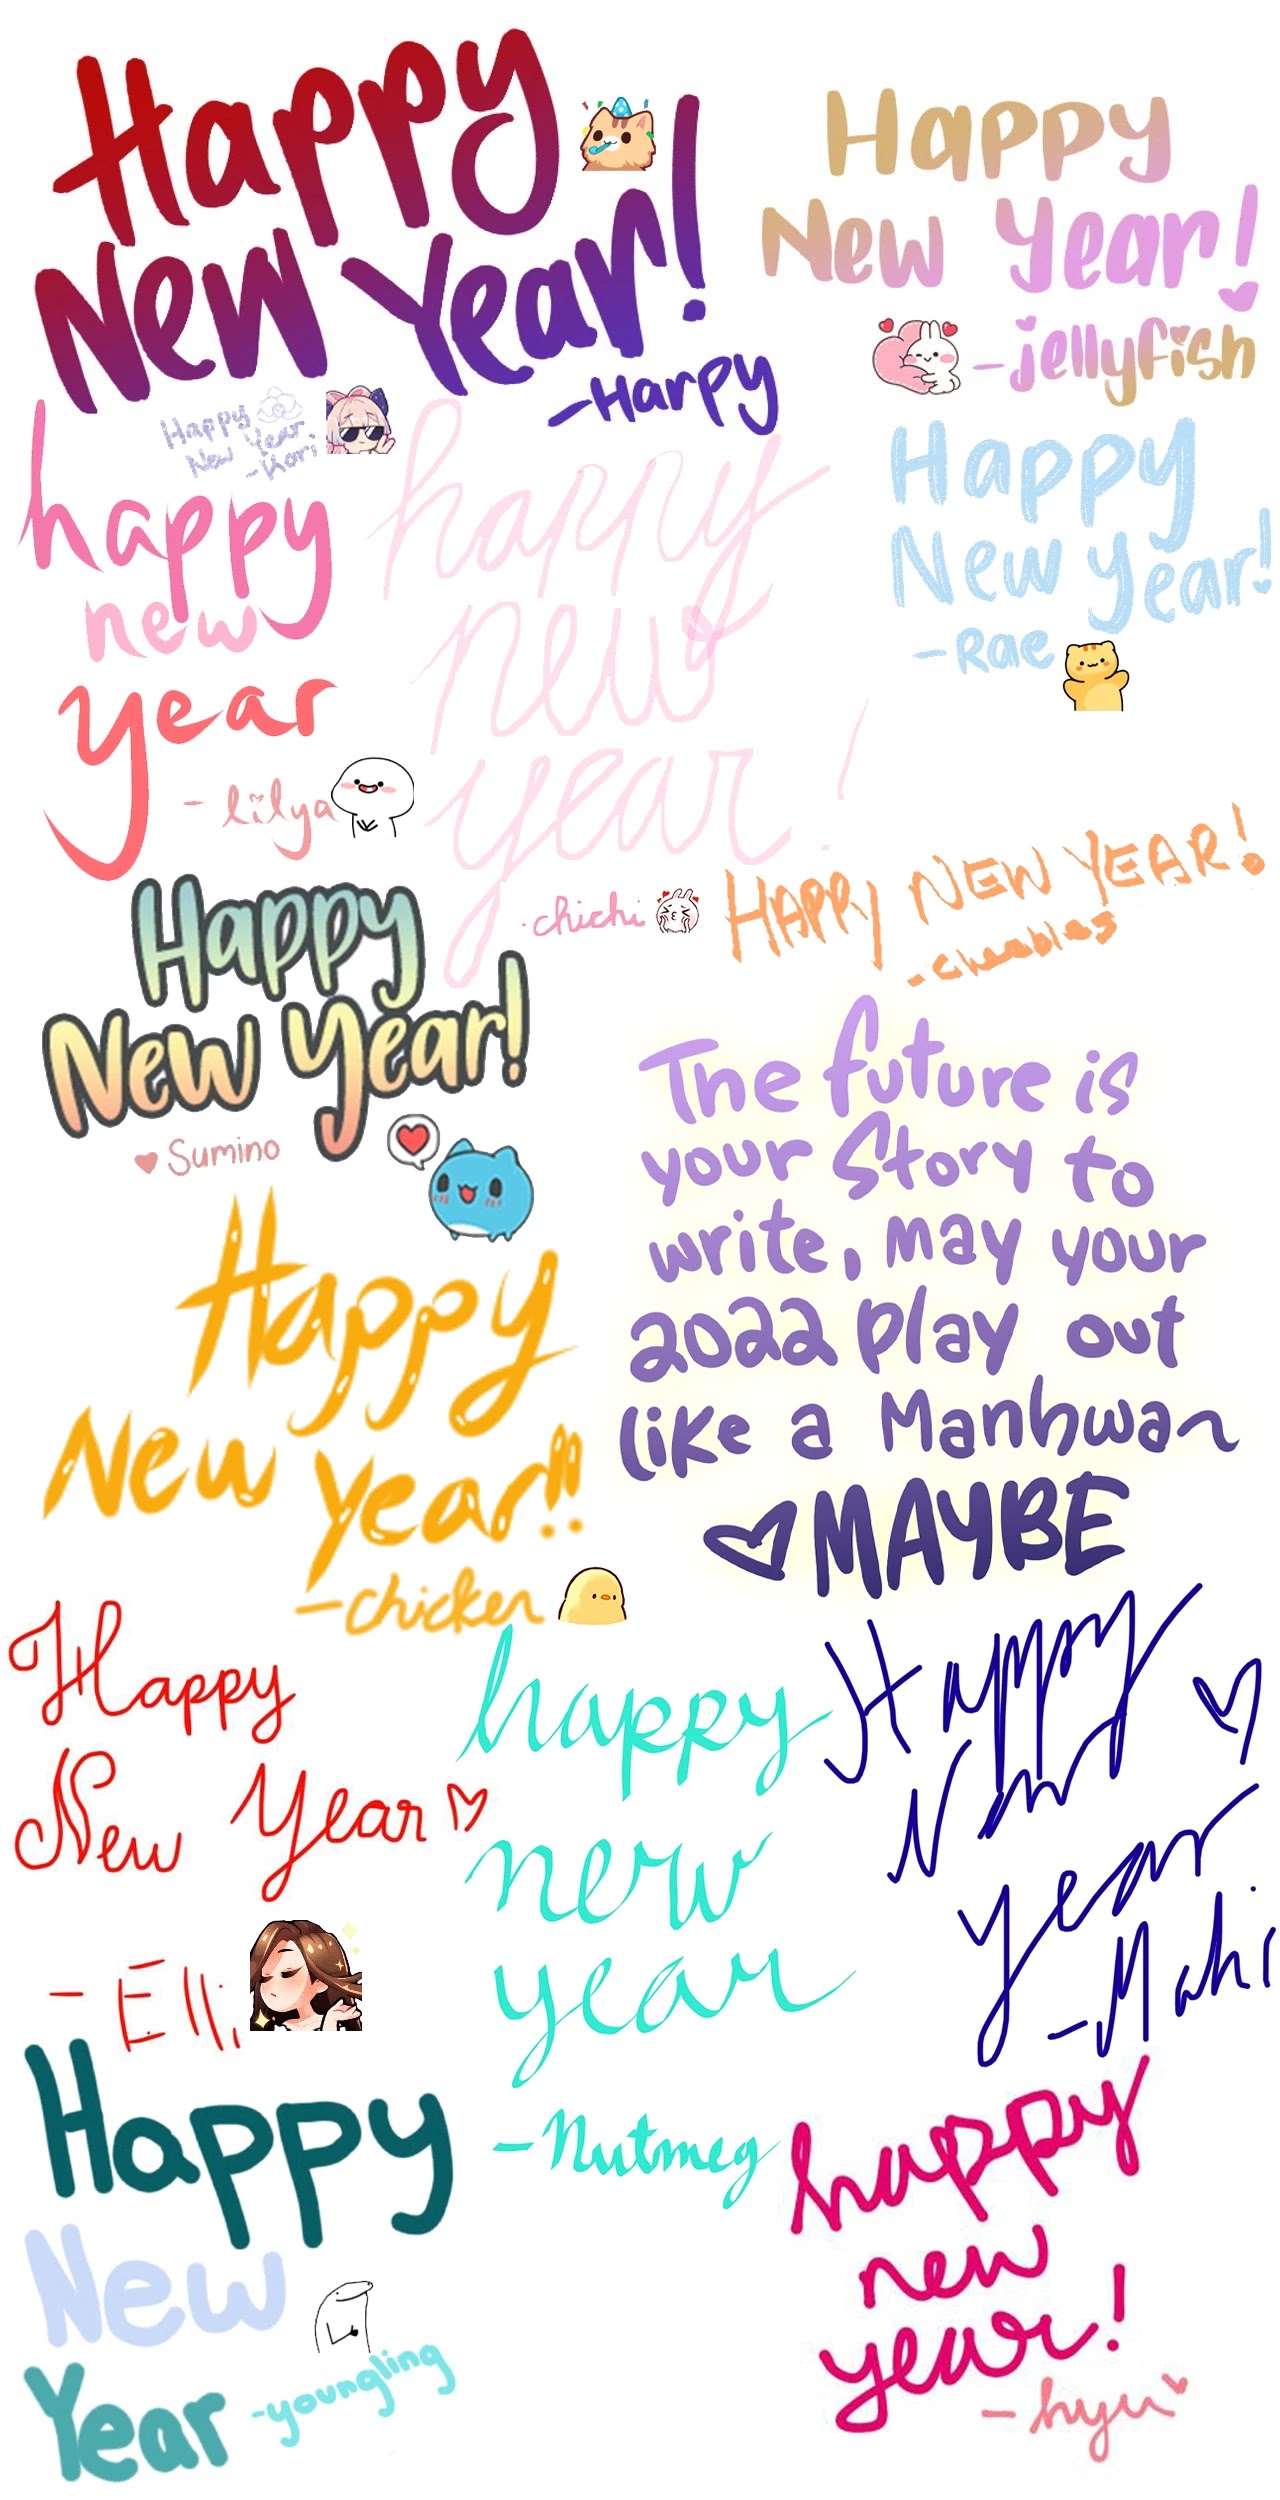 Happy
New Year!
-Harpy
Happy
New Year!
-jellyfish
Happy
New Year
-Kori
happy
new
year
-lilya
happy
new
year!
-chichi
Happy
New Year!
-Rae
HAPPY NEW YEAR!
Happy
New Year!
Sumino
The future is
your Story to
write, may your
2022 play out
like a Manhwa~
MAYBE
Happy
New Year!!
-chicken
Happy
New Year
-Elli
happy
new
year
-Nutmeg
Happy
New
Year
-Machi
Happy
New
Year
-youngling
happy
new
year!
-hyu